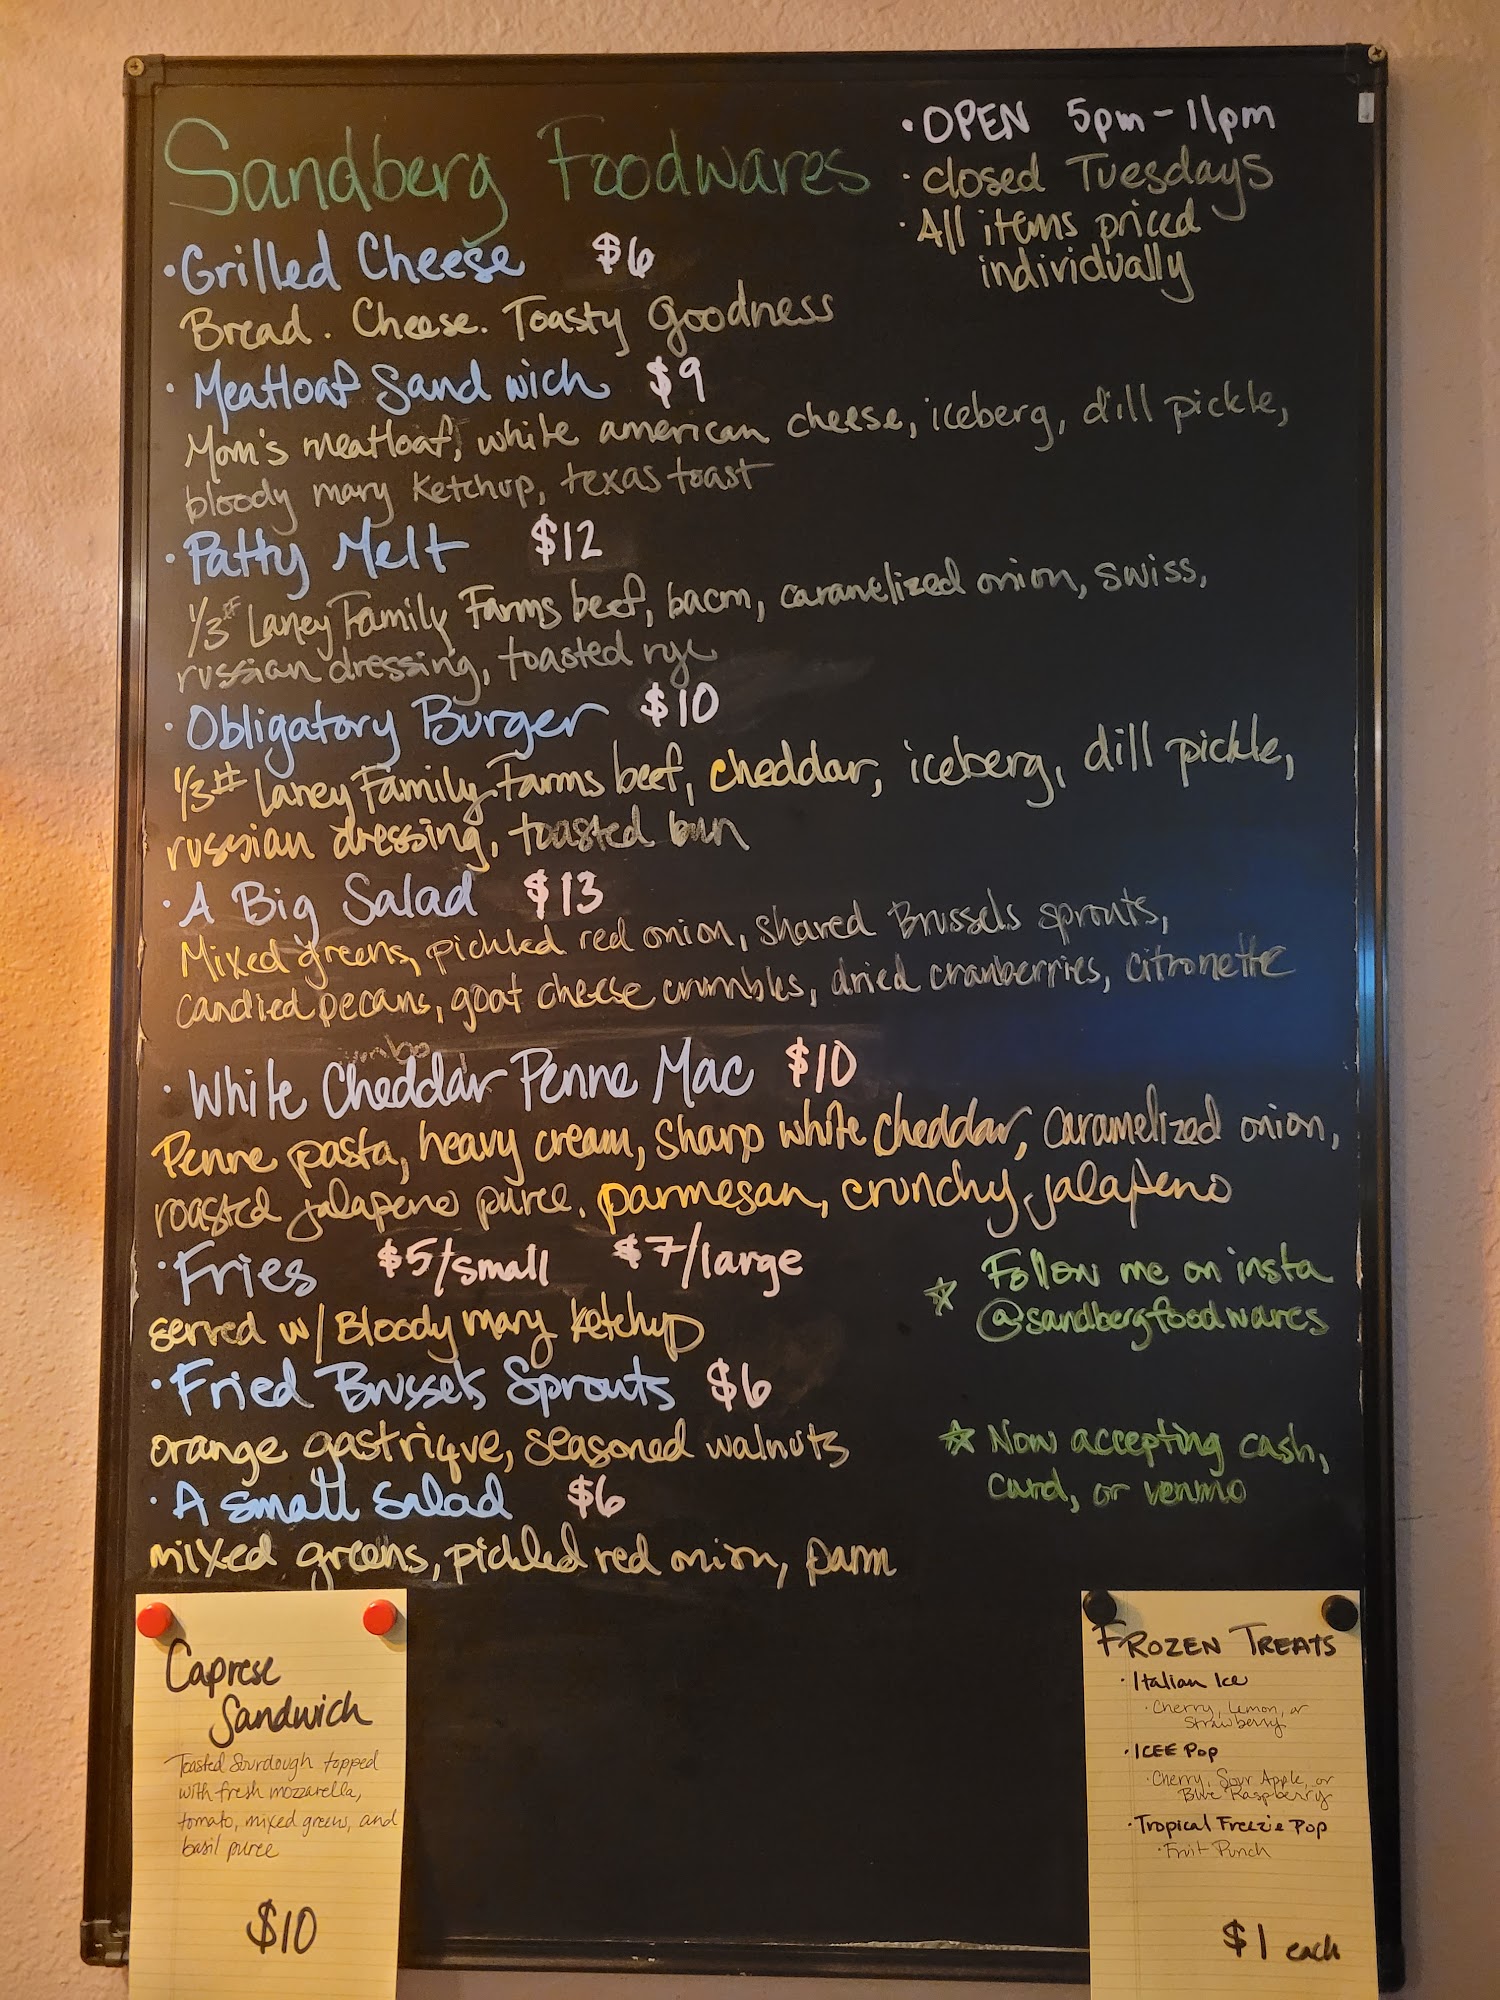 Sandberg Foodwares
• OPEN 5pm - 11pm
• closed Tuesdays
• All items priced
individually
• Grilled Cheese $6
Bread. Cheese. Toasty Goodness
• Meatloaf Sandwich $9
Mom's meatloaf, white american cheese, iceberg, dill pickle,
bloody mary ketchup, texas toast
• Patty Melt $12
1/3# Laney Family Farms beef, bacon, caramelized onion, swiss,
russian dressing, toasted rye
• Obligatory Burger $10
1/3# Laney Family Farms beef, cheddar, iceberg, dill pickle,
russian dressing, toasted bun
• A Big Salad $13
Mixed greens, pickled red onion, shared Brussels sprouts,
candied pecans, goat cheese crumbles, dried cranberries, citronette
• White Cheddar Penne Mac $10
Penne pasta, heavy cream, sharp white cheddar, caramelized onion,
roasted jalapeno puree, parmesan, crunchy jalapeno
• Fries $5/small $7/large
served w/ Bloody mary ketchup
• Fried Brussels Sprouts $6
orange gastrique, seasoned walnuts
• A small salad $6
mixed greens, pickled red onion, parm
☆ Follow me on insta
@sandbergfoodwares
☆ Now accepting cash,
card, or venmo
Caprese
Sandwich
Toasted Sourdough topped
with fresh mozzarella,
tomato, mixed greens, and
basil puree
$10
FROZEN TREATS
• Italian Ice
• Cherry, Lemon, or
Strawberry
• ICEE Pop
• Cherry, Sour Apple, or
Blue Raspberry
• Tropical Freezie Pop
• Fruit Punch
$1 each